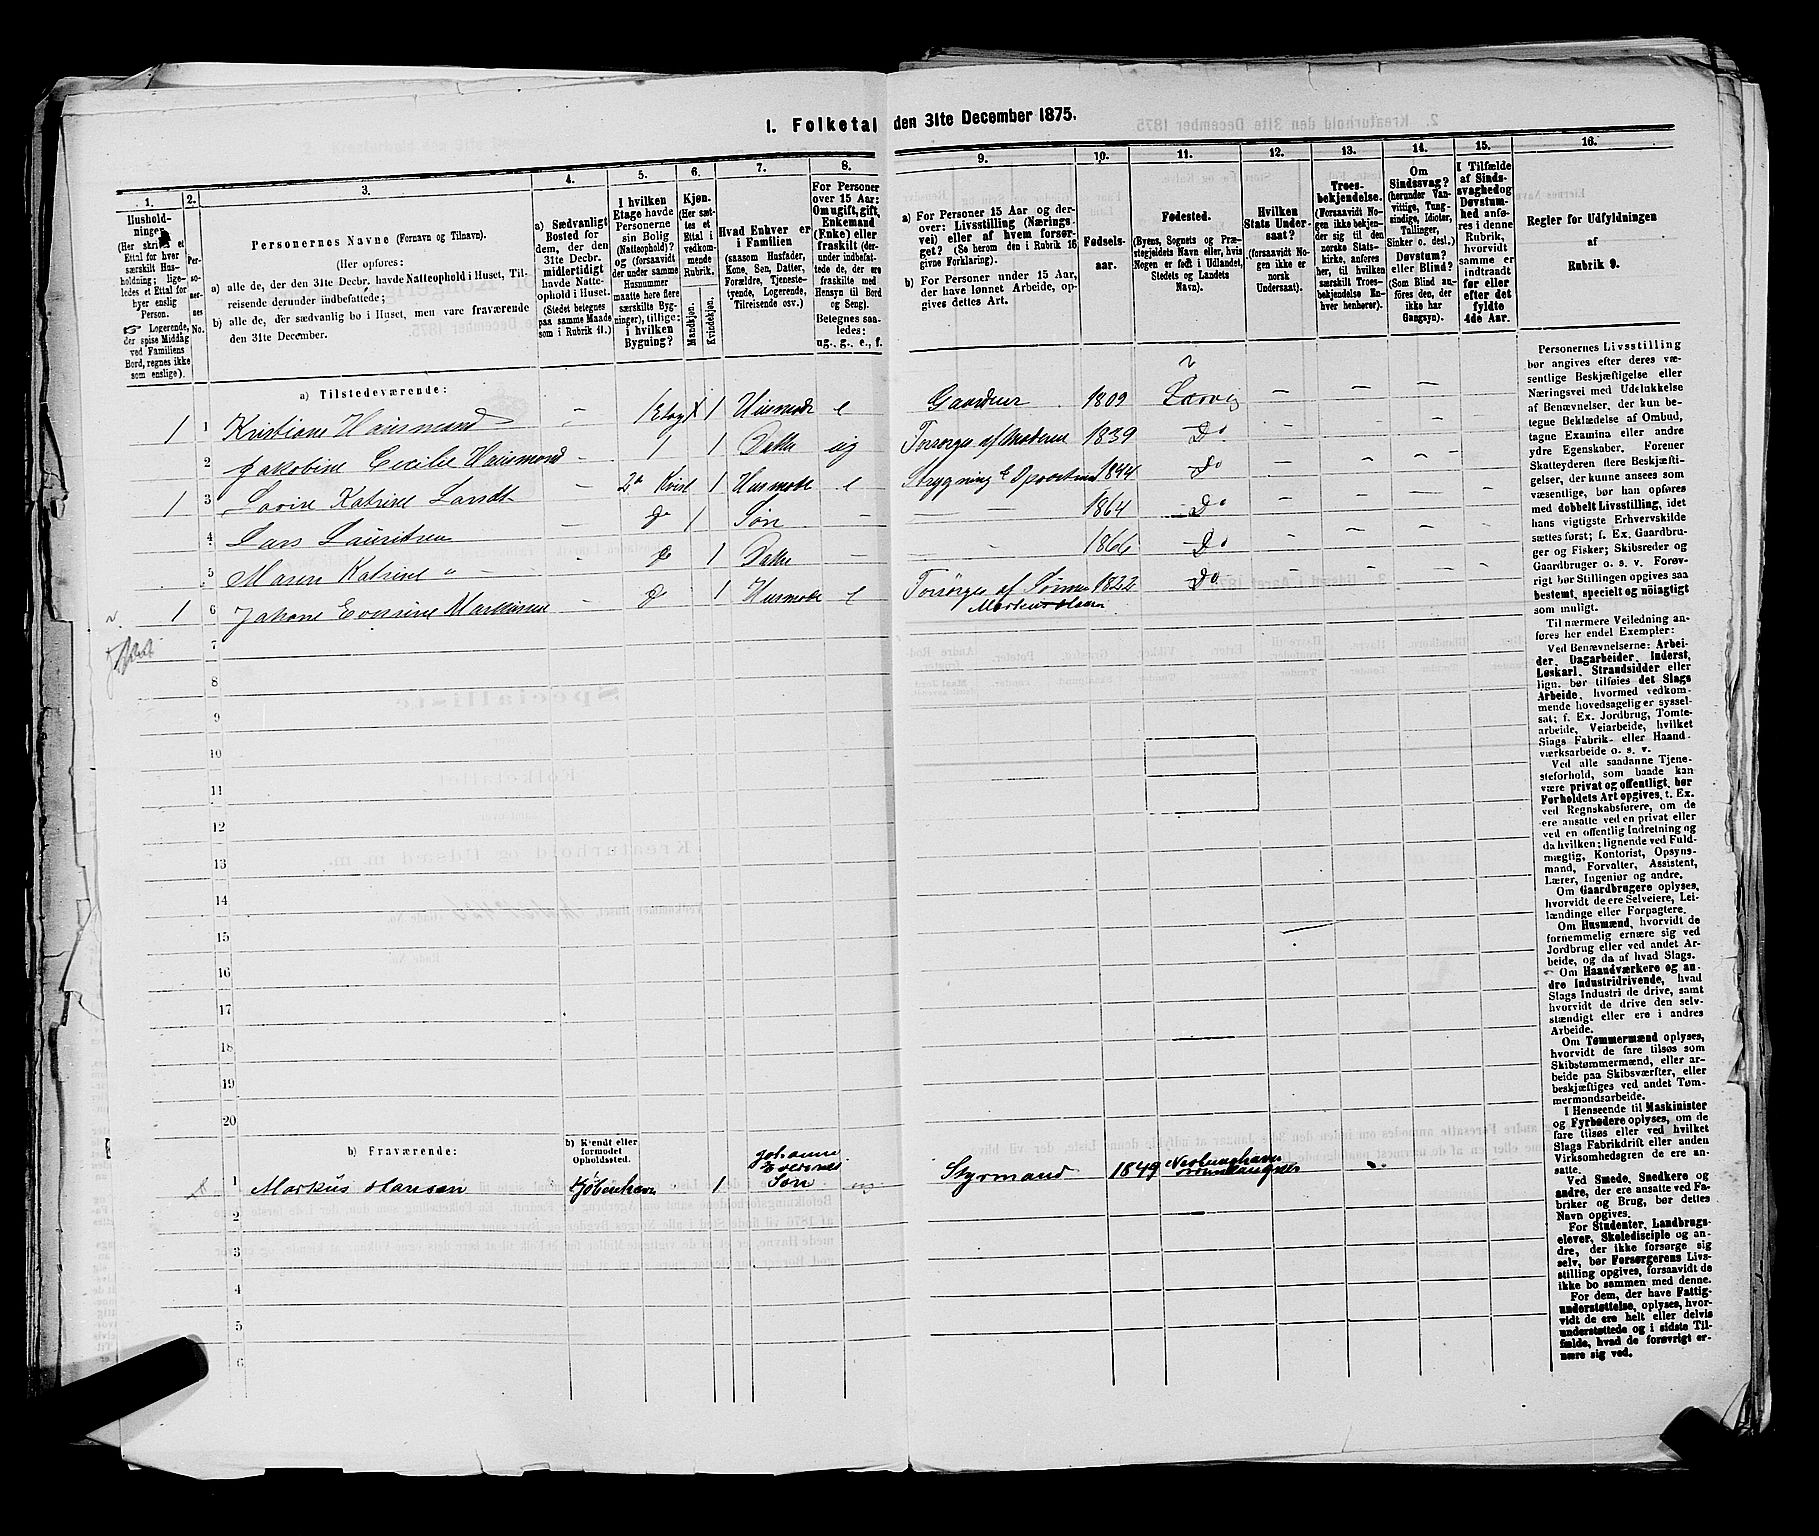 1. Folketal den 31te December 1875.
1. 2. 3. 4. 5. 6. 7. 8. 9. 10. 11. 12. 13. 14. 15. 16.
Husholdninger.
(Her skrives et
Ettal for hver
særskilt Husholdning;
ligeledes et Ettal for
hver enslig
Person.
Logerende,
der spise Middag
ved Familiens
Bord, regnes ikke
som enslige).
Personernes No.
Personernes Navne (Fornavn og Tilnavn).
(Her opføres:
a) alle de, der den 31te Decbr. havde Natteophold i Huset, Tilreisende
derunder indbefattede;
b) alle de, der sædvanlig bo i Huset, men vare fraværende
den 31te December.
a) Sædvanligt
Bosted for
dem, der den
31te Decbr.
midlertidigt
havde Natteophold
i Huset.
(Stedet betegnes
paa samme Maade
som i Rubrik 11.)
I hvilken
Etage havde
Personerne
sin Bolig
(Natteophold)?
og (forsaavidt
der under samme
Husnummer
maatte høre flere
særskilte Bygninger),
tillige:
i hvilken
Bygning?
Kjøn.
(Her sættes
et
Ettal i
vedkommende
Rubrik.
Mandkjøn.
Kvindekjøn.
Hvad Enhver er
i Familien
(saasom Husfader,
Kone, Søn, Datter,
Forældre, Tjenestetyende,
Logerende,
Tilreisende osv.)
For Personer
over 15 Aar:
Om ugift, gift,
Enkemand
(Enke) eller
fraskilt (derunder
indbefattede
de, der ere
fraskilte med
Hensyn til Bord
og Seng).
Betegnes saaledes:
ug., g., e., f.
a) For Personer 15 Aar og derover:
Livsstilling (Næringsvei)
eller af hvem forsørget?
(Se herom den i Rubrik 16
givne Forklaring).
b) For Personer under 15 Aar,
der have lønnet Arbeide, opgives
dettes Art.
Fødselsaar.
Fødested.
(Byens, Sognets og Præstegjeldets
Navn, hvis
Nogen er født i Udlandet,
Stedets og Landets
Navn).
Hvilken
Stats Undersaat?
(forsaavidt
Nogen ikke er
norsk
Undersaat).
Troesbekjendelse.
(Forsaavidt Nogen
ikke bekjender
sig til den
norske Statskirke,
anføres
her, til hvilken
særskilt Troesbekjendelse
Enhver
henhører).
Om
Sindssvag?
(herunder Vanvittige,
Tungsindige,
Idioter,
Tullinger,
Sinker o. desl.)
Døvstum?
eller Blind?
(Som Blind anføres
den, der
ikke har
Gangsyn).
I Tilfælde
af Sindssvaghed
og
Døvstumhed
anføres
i denne
Rubrik,
hvorvidt
samme er
indtraadt
før eller
efter det
fyldte
4de Aar.
Regler for Udfyldningen
af
Rubrik 9.
a) Tilstedeværende:
1 1 Kristiane Hausmand – 1 Etage 1 Husmode e Gaardeier 1809 Larvig – – –
2 Jakobine Cecilie Hausmand – 1 1 Datte ug Forsørges af Moderen 1839 Do – – –
1 3 Katrine – 2n Kvist 1 Husmode e Strygning 1844 Do – – – –
4 Lars Lauritsen – do 1 Søn – – 1864 Do – – – –
5 Maren Katrine " – do 1 Datte – – 1866 Do – – – –
1 6 Johane Evensine – do 1 Husmode e Forsørges af Sønnen 1822 Do
Markus Hansen
7
8
9
10
11
12
13
14
15
16
17
18
19
20
b) Fraværende:
b) Kjendt eller
formodet
Opholdssted.
Johanne
Evensines
1 Markus Hansen Kjøbenhavn 1 Søn ug Styrmand 1849
2
3
4
5
6
Personernes Livsstilling
bør angives efter deres væsentlige
Beskjæftigelse eller
Næringsvei med Udelukkelse
af Benævnelser, der kun betegne
Beklædelse af Ombud,
tagne Examina eller andre
ydre Egenskaber. Forener
Skatteyderen flere Beskjæftigelser,
der kunne ansees som
væsentlige, bør han opføres
med dobbelt Livsstilling, idet
hans vigtigste Erhvervskilde
sættes først; f. Ex. Gaardbruger
og Fisker; Skibsreder og
Gaardbruger o. s. v. Forøvrigt
bør Stillingen opgives saa
bestemt, specielt og nøiagtigt
som muligt.
Til nærmere Veiledning anføres
her endel Exempler:
Ved Benævnelserne: Arbeider,
Dagarbeider, Inderst,
Løskarl, Strandsidder eller
lign. bør tilføies det Slags
Arbeide, hvormed vedkommende
hovedsagelig er sysselsat;
f. Ex. Jordbrug, Tomtearbeide,
Veiarbeide, hvilket
Slags Fabrik- eller Haandværksarbeide
o. s. v.
Ved alle saadanne Tjenesteforhold,
som baade kan
være privat og offentligt, bør
Forholdets Art opgives, t. Ex.
ved Regnskabsførere, om de
ere ansatte ved en privat eller
ved en offentlig Indretning og
da hvilken; lignende ved Fuldmægtig,
Kontorist, Opsynsmand,
Forvalter, Assistent,
Lærer, Ingeniør og andre.
Om Gaardbrugere oplyses,
hvorvidt de ere Selveiere, Leilændinge
eller Forpagtere.
Om Husmænd, hvorvidt de
fornemmelig ernære sig ved
Jordbrug eller ved andet Arbeide,
og da af hvad Slags.
Om Haandværkere og andre
Industridrivende, hvad
Slags Industri de drive, samt
hvorvidt de drive den selvstændigt
eller ere i andres
Arbeide.
Om Tømmermænd oplyses,
hvorvidt de fare tilsøs som
Skibstømmermænd, eller arbeide
paa Skibsværfter, eller
beskjæftiges ved andet Tømmermandsarbeide.
I Henseende til Maskinister
og Fyrbødere oplyses, om de
fare tilsøs eller ved hvilket
Slags Fabrikdrift eller anden
Virksomhedsgren de ere ansatte.
Ved Smede, Snedkere og
andre, der ere ansatte ved Fabriker
og Brug, bør dettes
Navn opgives.
For Studenter, Landbrugselever,
Skoledisciple og andre,
der ikke forsørge sig
selv, bør Forsørgerens Livsstilling
opgives, forsaavidt de
ikke bo sammen med denne.
For dem, der have Fattigunderstøttelse,
oplyses, hvorvidt
de ere helt eller delvis
understøttede og i sidste Tilfælde,
hvad de forøvrigt ernære
sig ved.